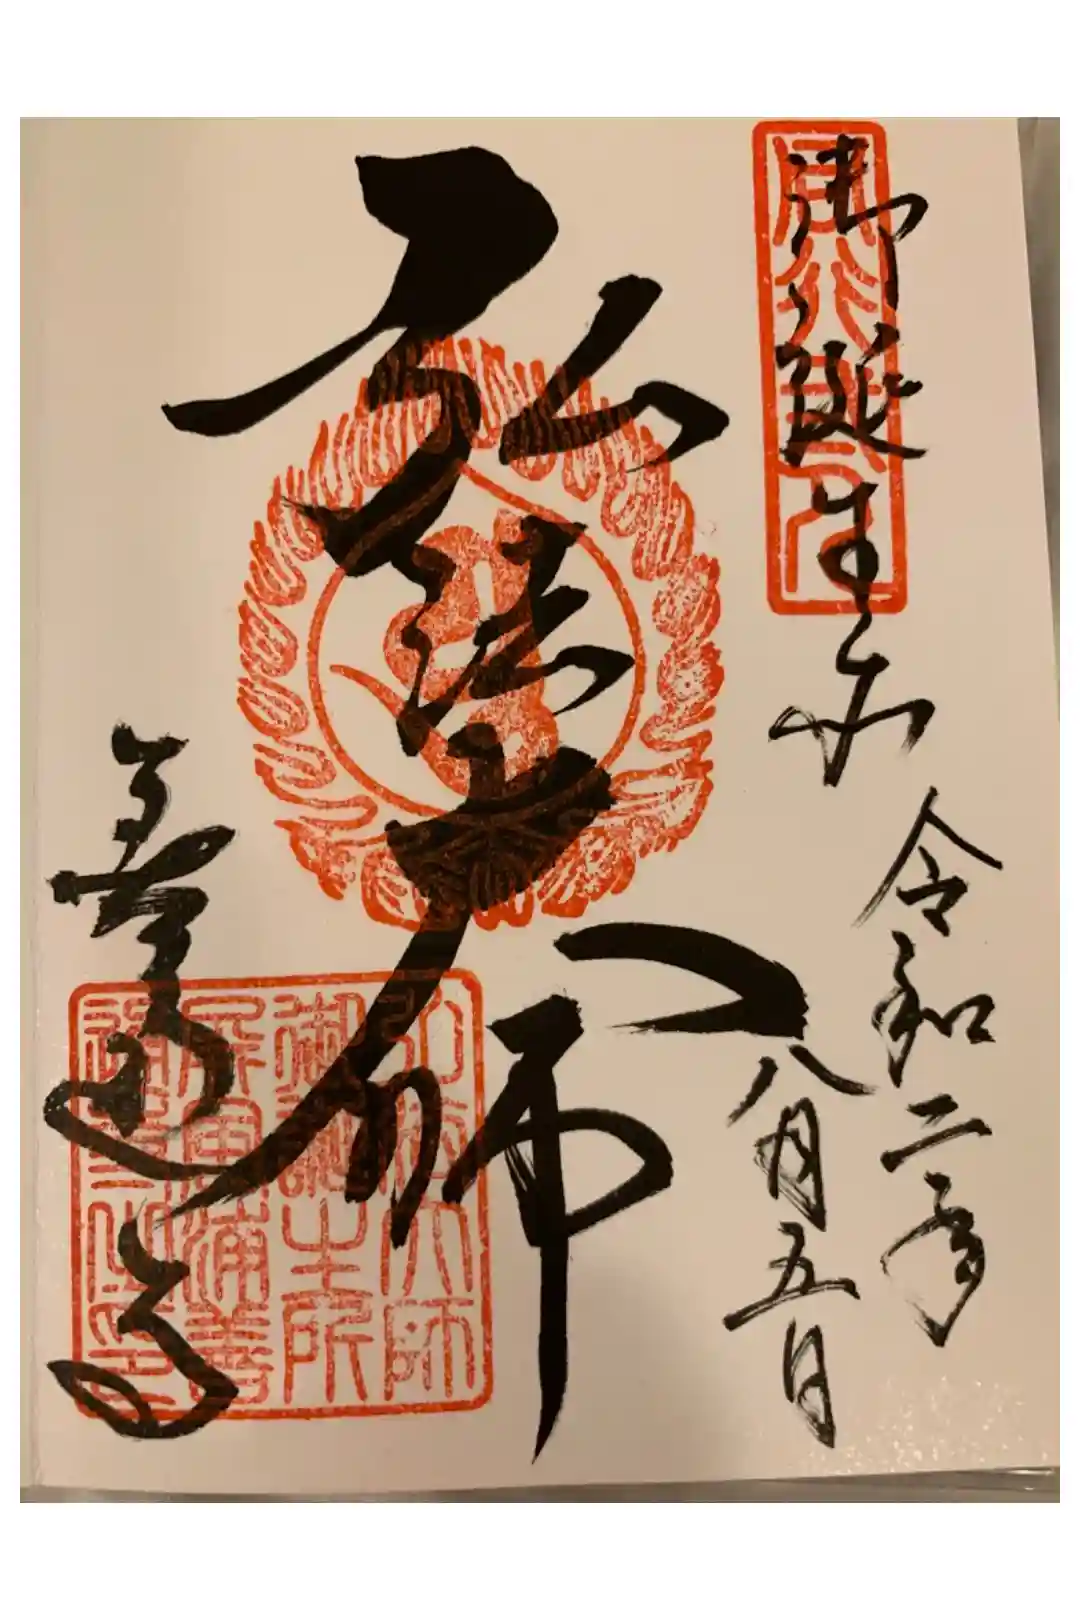 御誕生所
令和二年
八月五日
弘法大師
善通寺
弘法大師
御誕生所
屏風浦善
通寺之印